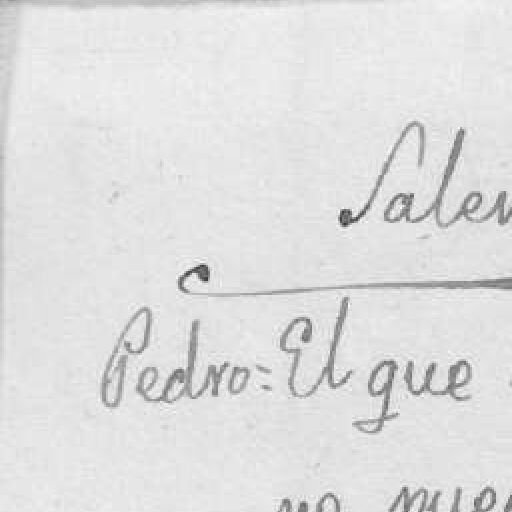 Salen
Pedro=El que
no pue